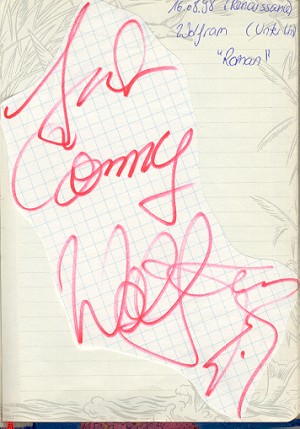 16.08.98 (Renaissance)
Wolfram
"Roman"
Für
Conny
Wolfram